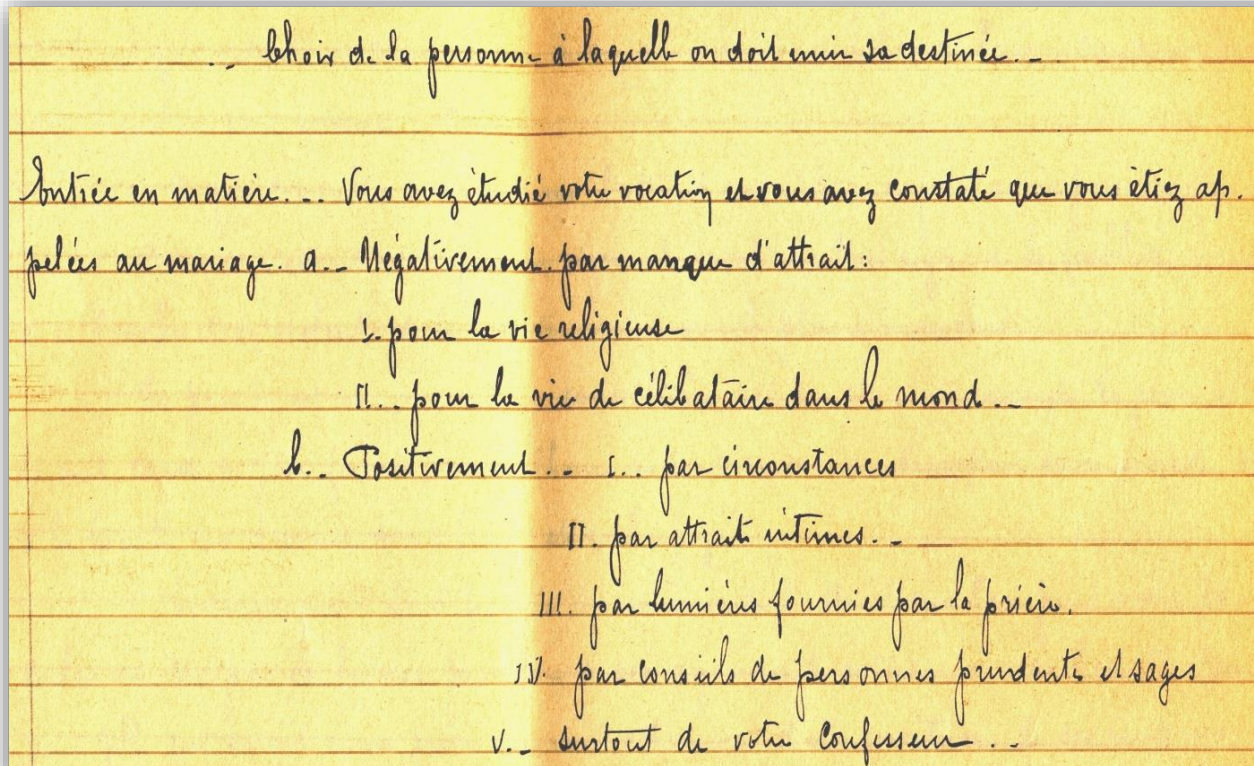 .. Choix de la personne à laquelle on doit unir sa destinée. -
Entrée en matière. .. Vous avez étudié votre vocation et vous avez constaté que vous étiez ap.
pelées au mariage. a. - Négativement. par manque d'attrait :
I. pour la vie religieuse
II. .. pour la vie de célibataire dans le monde. -
b. . Positivement. .- I. .. par circonstances
II. par attraits intimes. -
III. par lumières fournies par la prière.
IV. par conseils de personnes prudentes et sages
V. - surtout de votre confesseur. .-